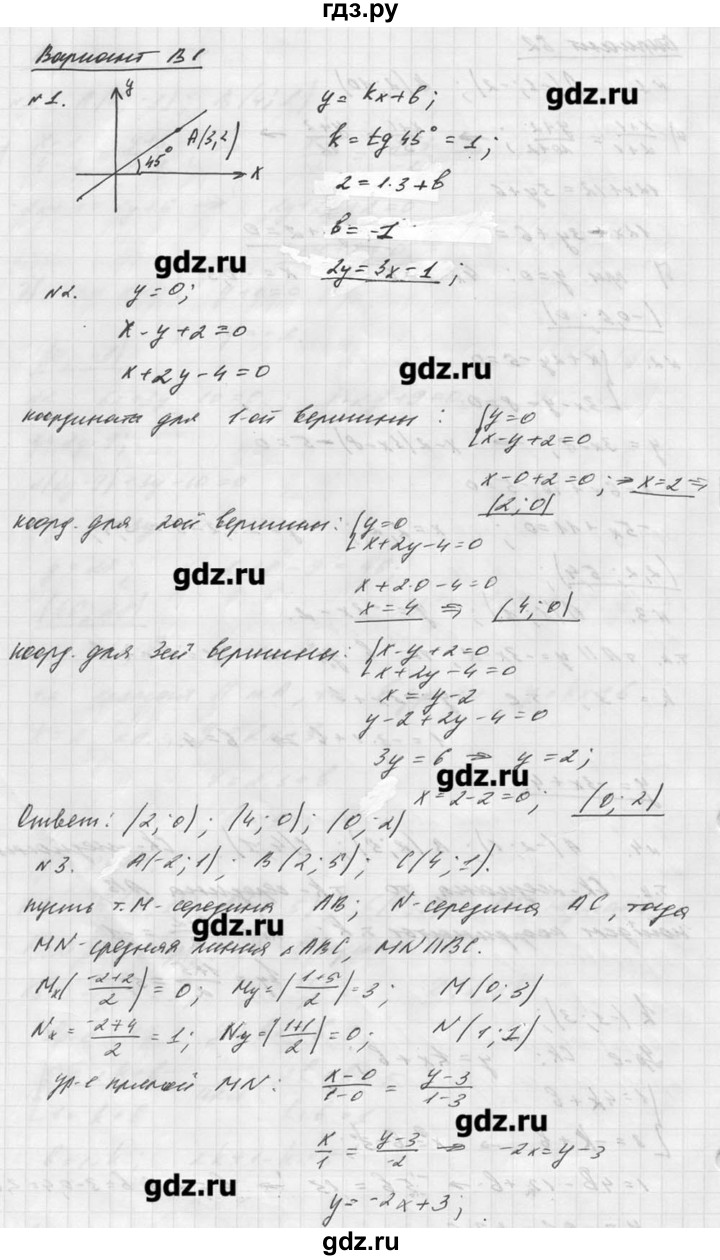 гдз.ру
Вариант В1
№1. y x A(3,2) 45°
y = kx + b;
k = tg 45° = 1;
2 = 1·3 + b
b = -1
2y = 3x - 1;
gdz.ru
gdz.ru
№2. y = 0;
x - y + 2 = 0
x + 2y - 4 = 0
gdz.ru
координаты для 1-ой вершины: {y = 0
x - y + 2 = 0
x - 0 + 2 = 0; ⇒ x = 2 ⇒
(2; 0)
коорд. для 2ой вершины: {y = 0
x + 2y - 4 = 0
gdz.ru
x + 2·0 - 4 = 0
x = 4 ⇒ (4; 0)
коорд. для 3ей вершины: {x - y + 2 = 0
x + 2y - 4 = 0
x = y - 2
y - 2 + 2y - 4 = 0
3y = 6 ⇒ y = 2;
gdz.ru
x = 2 - 2 = 0; (0; 2)
Ответ: (2; 0); (4; 0); (0; 2)
№3. A(-2; 1); B(2; 5); C(4; 1).
пусть т. M - середина AB; N - середина AC, тогда
gdz.ru
MN - средняя линия △ABC, MN || BC.
Mx(-2+2/2) = 0; My = (1+5/2) = 3; M(0; 3)
Nx = -2+4/2 = 1; Ny = (1+1/2) = 0; N(1; 1)
ур-е прямой MN: x-0/1-0 = y-3/1-3
gdz.ru
x/1 = y-3/-2 ⇒ -2x = y - 3
gdz.ru
y = -2x + 3;
gdz.ru